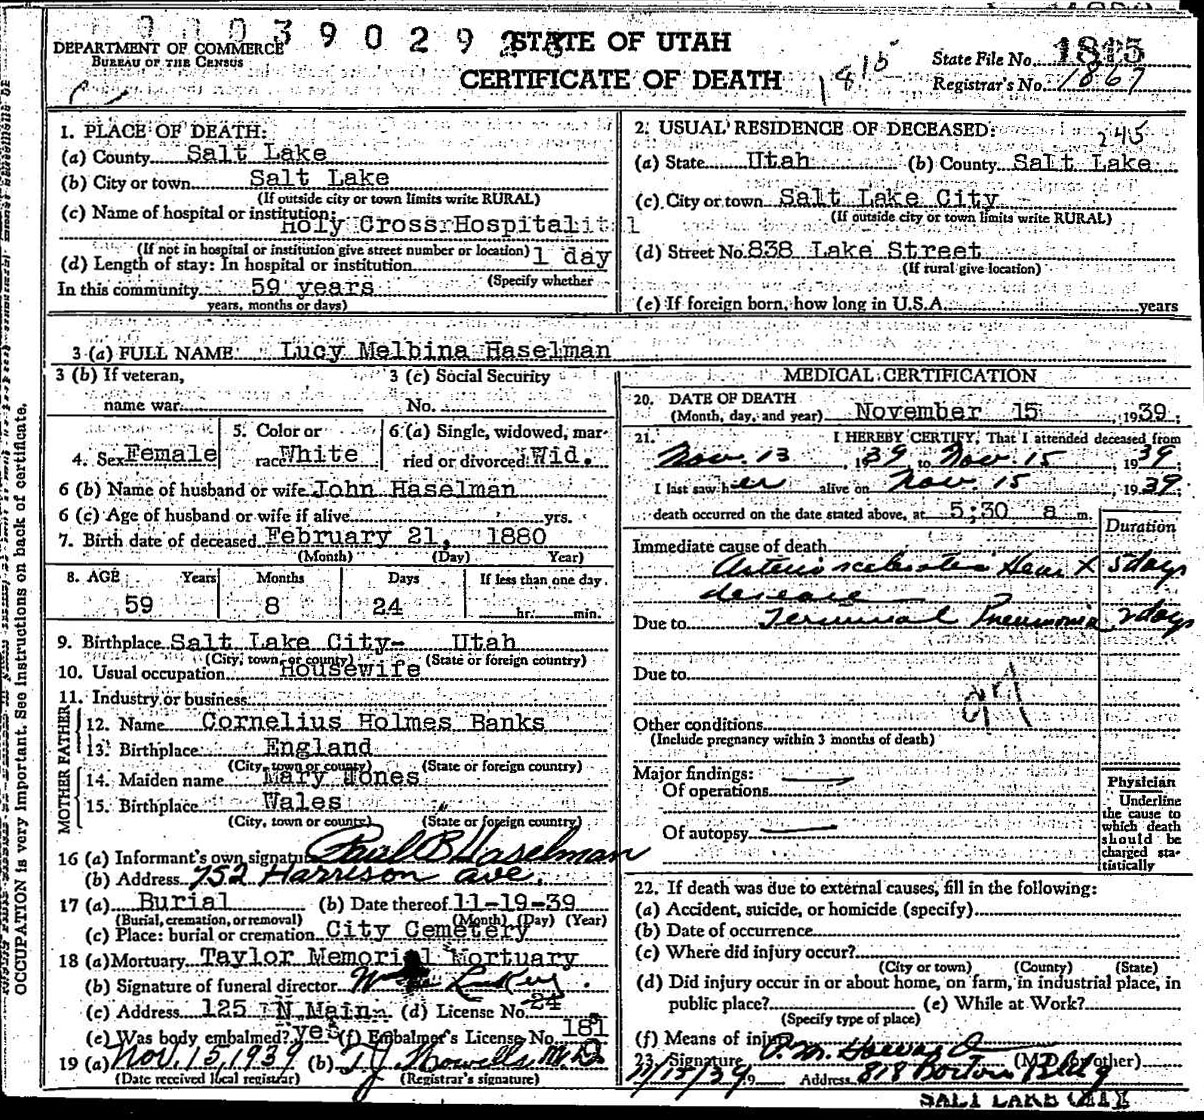 0390292
STATE OF UTAH
DEPARTMENT OF COMMERCE
BUREAU OF THE CENSUS
CERTIFICATE OF DEATH
1815
State File No. 1815
Registrar's No. 1867
1. PLACE OF DEATH:
(a) County Salt Lake
(b) City or town Salt Lake
(If outside city or town limits write RURAL)
(c) Name of hospital or institution:
Holy Cross Hospital
(If not in hospital or institution give street number or location)
(d) Length of stay: In hospital or institution 1 day
(Specify whether
In this community 59 years
years, months or days)
2. USUAL RESIDENCE OF DECEASED:
245
(a) State Utah (b) County Salt Lake
(c) City or town Salt Lake City
(If outside city or town limits write RURAL)
(d) Street No. 838 Lake Street
(If rural give location)
(e) If foreign born, how long in U.S.A. years
3 (a) FULL NAME Lucy Melbina Haselman
3 (b) If veteran,
name war
3 (c) Social Security
No.
4. Sex Female
5. Color or
race White
6 (a) Single, widowed, mar-
ried or divorced: Wid.
6 (b) Name of husband or wife John Haselman
6 (c) Age of husband or wife if alive yrs.
7. Birth date of deceased February 21, 1880
(Month) (Day) Year)
8. AGE Years Months Days If less than one day
59 8 24 hr. min.
9. Birthplace Salt Lake City- Utah
(City, town or county) (State or foreign country)
10. Usual occupation Housewife
11. Industry or business
FATHER
12. Name Cornelius Holmes Banks
13. Birthplace England
(City, town or county) (State or foreign country)
MOTHER
14. Maiden name Mary Jones
15. Birthplace Wales
(City, town or county) (State or foreign country)
16 (a) Informant's own signature Paul B Haselman
(b) Address 752 Harrison ave.
17 (a) Burial (b) Date thereof 11-19-39
(Burial, cremation, or removal) (Month) (Day) (Year)
(c) Place: burial or cremation City Cemetery
18 (a) Mortuary Taylor Memorial Mortuary
(b) Signature of funeral director
(c) Address 125 N Main (d) License No. 24
(e) Was body embalmed? yes (f) Embalmer's License No. 181
19 (a) Nov. 15, 1939 (b) T.J. Howells M.D.
(Date received local registrar) (Registrar's signature)
MEDICAL CERTIFICATION
20. DATE OF DEATH
(Month, day, and year) November 15, 1939
21. I HEREBY CERTIFY, That I attended deceased from
Nov. 13, 1939 to Nov. 15 1939
I last saw her alive on Nov. 15, 1939
death occurred on the date stated above, at 5:30 a m.
Duration
Immediate cause of death
Arteriosclerotic Heart 5 days
disease
Due to Terminal Pneumonia 2 days
Due to
97
Other conditions
(Include pregnancy within 3 months of death)
Major findings:
Of operations
Of autopsy
Physician
Underline
the cause to
which death
should be
charged sta-
tistically
22. If death was due to external causes, fill in the following:
(a) Accident, suicide, or homicide (specify)
(b) Date of occurrence
(c) Where did injury occur?
(City or town) (County) (State)
(d) Did injury occur in or about home, on farm, in industrial place, in
public place? (e) While at Work?
(Specify type of place)
(f) Means of injury
23. Signature (M.D. or other)
11/15/39 Address 818 Boston Bldg
SALT LAKE CITY
OCCUPATION is very important. See instructions on back of certificate.